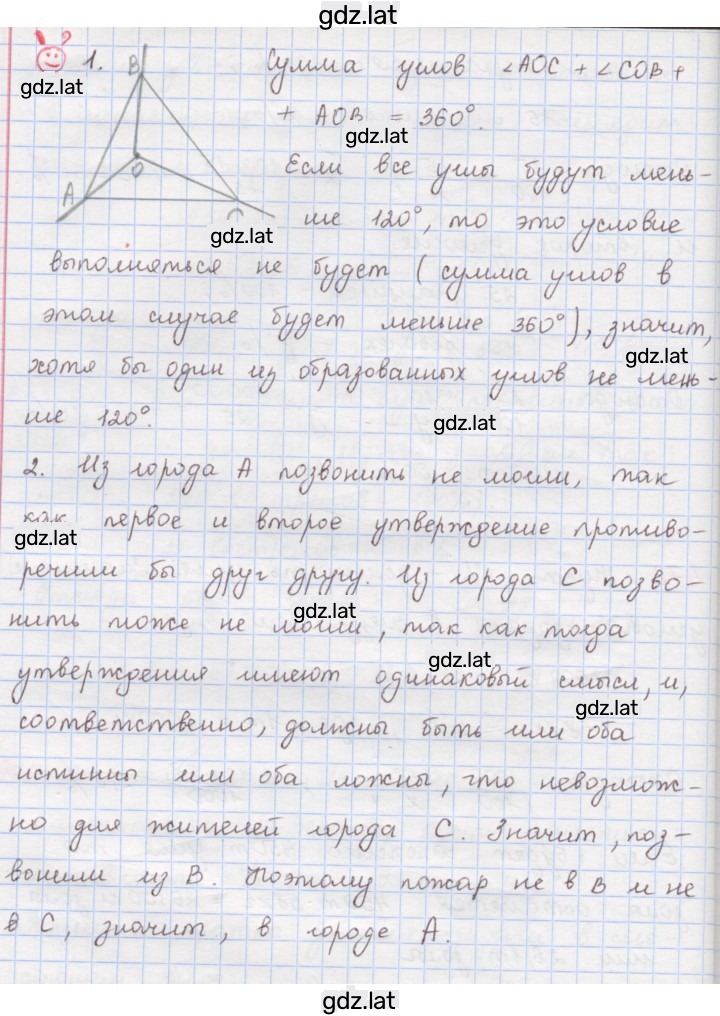 gdz.lat
1. Сумма углов ∠AOC + ∠COB +
gdz.lat
+ AOB = 360°.
gdz.lat
B
O
A
C
Если все углы будут мень-
ше 120°, то это условие
gdz.lat
выполняться не будет (сумма углов в
этом случае будет меньше 360°), значит,
gdz.lat
хотя бы один из образованных углов не мень-
ше 120°.
gdz.lat
2. Из города А позвонить не могли, так
как первое и второе утверждение противо-
gdz.lat
речили бы друг другу. Из города С позво-
нить тоже не могли, так как тогда
gdz.lat
утверждения имеют одинаковый смысл, и,
gdz.lat
соответственно, должны быть или оба
gdz.lat
истинны или оба ложны, что невозмож-
но для жителей города С. Значит, поз-
вонили из В. Поэтому пожар не в В и не
в С, значит, в городе А.
gdz.lat